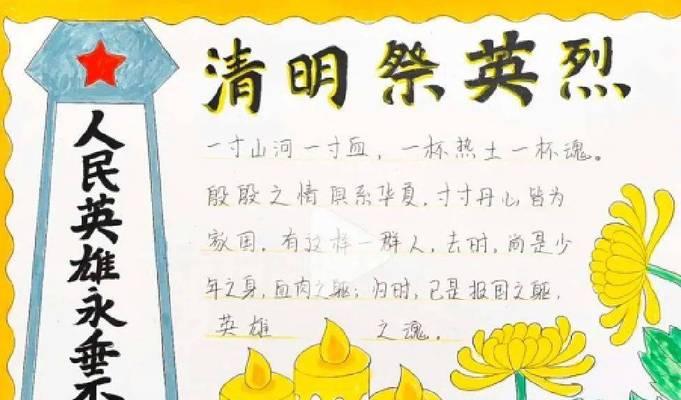 清明祭英烈
人民英雄永垂不
一寸山河一寸血，一杯热土一杯魂。
殷殷之情俱系华夏，寸寸丹心皆为
家国。有这样一群人，去时，尚是少
年之身，血肉之躯；归时，已是报国之躯，
英雄 之魂。